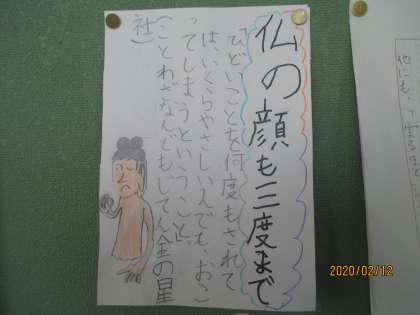 仏の顔も三度まで
ひどいことを何度もされて
は、いくらやさしい人でも、おこ
ってしまうということ。
(ことわざなんでもじてん金の星
社)
2020/02/12